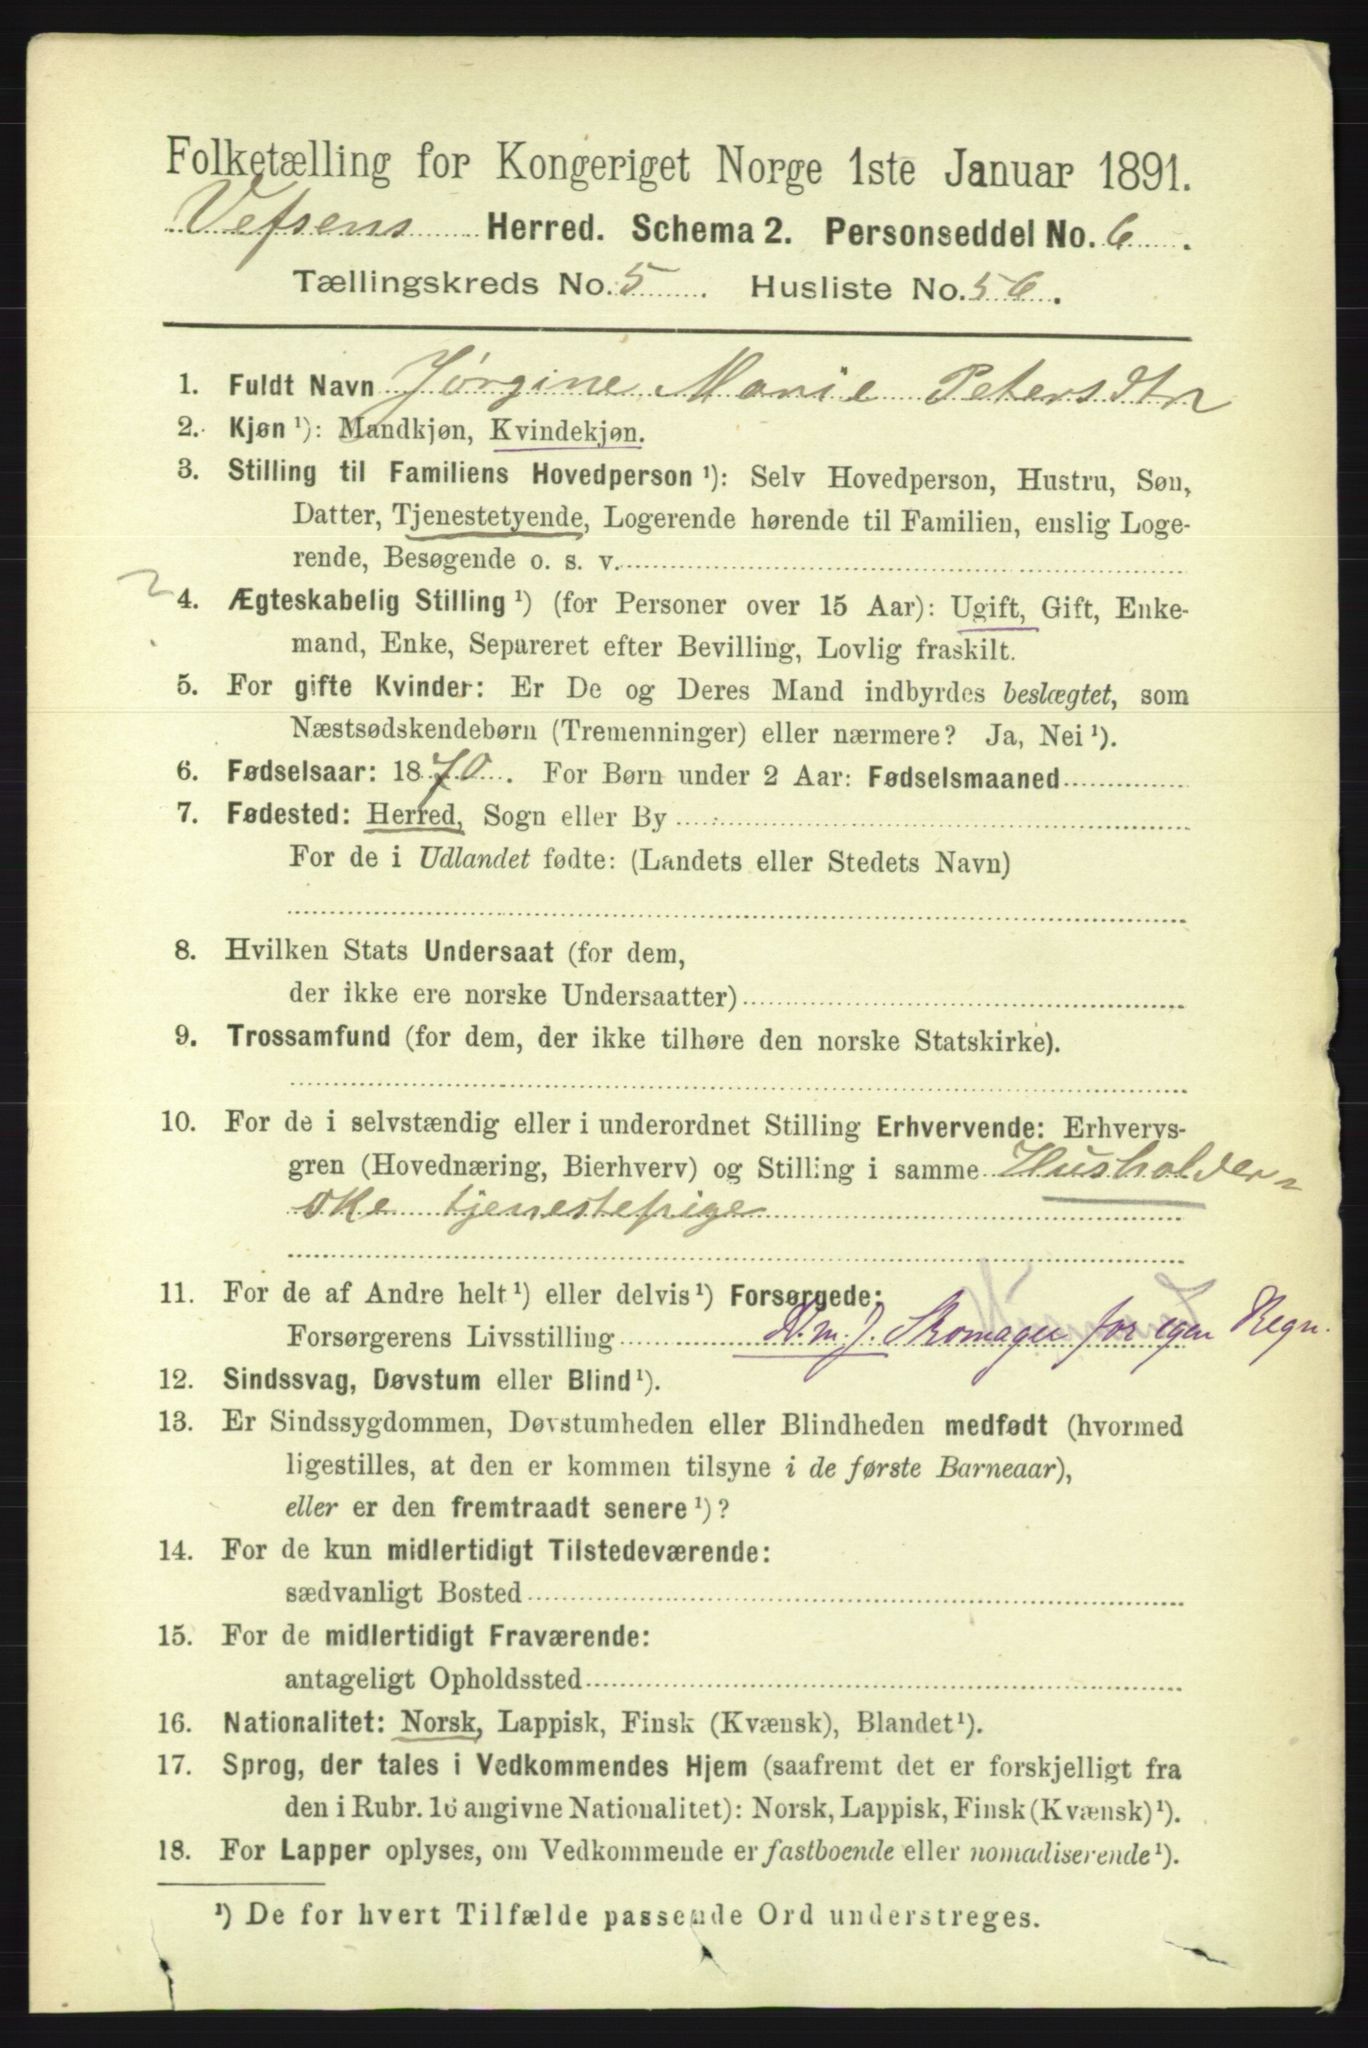 Folketælling for Kongeriget Norge 1ste Januar 1891.
Vefsens Herred. Schema 2. Personseddel No. 6.
Tællingskreds No. 5. Husliste No. 56.
1. Fuldt Navn Jørgine Marie Petersdtr
2. Kjøn ¹): Mandkjøn, Kvindekjøn.
3. Stilling til Familiens Hovedperson ¹): Selv Hovedperson, Hustru, Søn,
Datter, Tjenestetyende, Logerende hørende til Familien, enslig Loge-
rende, Besøgende o. s. v.
4. Ægteskabelig Stilling ¹) (for Personer over 15 Aar): Ugift, Gift, Enke-
mand, Enke, Separeret efter Bevilling, Lovlig fraskilt.
5. For gifte Kvinder: Er De og Deres Mand indbyrdes beslægtet, som
Næstsødskendebørn (Tremenninger) eller nærmere? Ja, Nei ¹).
6. Fødselsaar: 1870. For Børn under 2 Aar: Fødselsmaaned
7. Fødested: Herred, Sogn eller By
For de i Udlandet fødte: (Landets eller Stedets Navn)
8. Hvilken Stats Undersaat (for dem,
der ikke ere norske Undersaatter)
9. Trossamfund (for dem, der ikke tilhøre den norske Statskirke).
10. For de i selvstændig eller i underordnet Stilling Erhvervende: Erhvervs-
gren (Hovednæring, Bierhverv) og Stilling i samme Husholder-
ske tjenestepige
11. For de af Andre helt ¹) eller delvis ¹) Forsørgede:
Forsørgerens Livsstilling H.m.f. Skomager for egen Regn.
12. Sindssvag, Døvstum eller Blind ¹).
13. Er Sindssygdommen, Døvstumheden eller Blindheden medfødt (hvormed
ligestilles, at den er kommen tilsyne i de første Barneaar),
eller er den fremtraadt senere ¹)?
14. For de kun midlertidigt Tilstedeværende:
sædvanligt Bosted
15. For de midlertidigt Fraværende:
antageligt Opholdssted
16. Nationalitet: Norsk, Lappisk, Finsk (Kvænsk), Blandet ¹).
17. Sprog, der tales i Vedkommendes Hjem (saafremt det er forskjelligt fra
den i Rubr. 16 angivne Nationalitet): Norsk, Lappisk, Finsk (Kvænsk) ¹).
18. For Lapper oplyses, om Vedkommende er fastboende eller nomadiserende ¹).
¹) De for hvert Tilfælde passende Ord understreges.